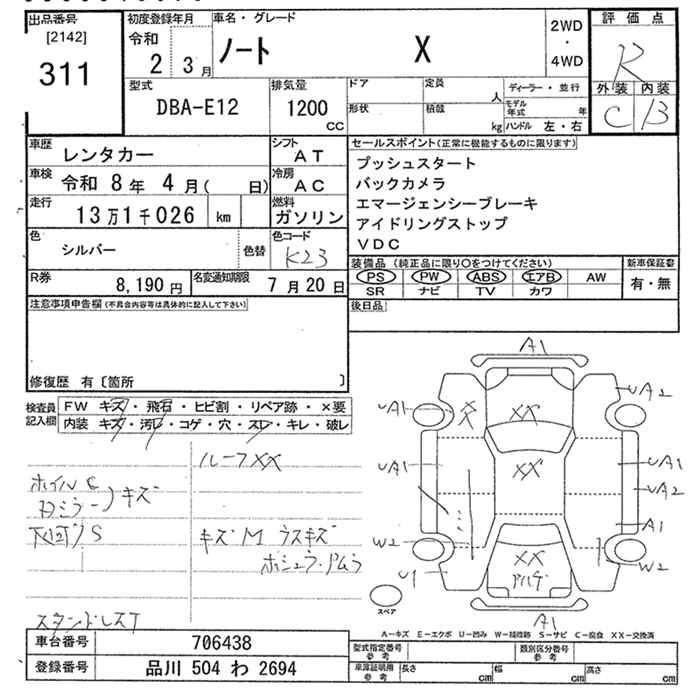 出品番号
[2142]
311
初度登録年月
令和
2 3月
車名・グレード
ノート X
2WD
・
4WD
評価点
R
外装 内装
C B
型式
DBA-E12
排気量
1200
CC
ドア
定員
人
形状
積載
kg
ディーラー・並行
モデル年式 年
ハンドル 左・右
車歴
レンタカー
シフト
AT
車検
令和 8年 4月( 日)
冷房
AC
走行
13万1千026 km
燃料
ガソリン
色
シルバー
色替
色コード
K23
R券
8,190円
名変通知期限
7月20日
セールスポイント(正常に機能するものに限ります)
プッシュスタート
バックカメラ
エマージェンシーブレーキ
アイドリングストップ
VDC
装備品 (純正品に限り〇をつけてください)
新車保証書
PS PW ABS エアB AW
SR ナビ TV カワ
有・無
後日品
注意事項申告欄(不具合内容等は具体的に記入して下さい)
修復歴 有〔箇所 〕
検査員記入欄
FW キズ・飛石・ヒビ割・リペア跡・×要
内装 キズ・汚レ・コゲ・穴・スレ・キレ・破レ
ルーフXX
キズ
キズM ウスキズ
スタンドレスT
A1
UA1
XX
UA2
UA1
XX
UA1
UA2
A1
W2
XX
W2
U1
A1
スペア
A-キズ E-エクボ U-凹み W-補修跡 S-サビ C-腐食 XX-交換済
車台番号
706438
登録番号
品川 504 わ 2694
型式指定番号
参考
類別区分番号
参考
車庫証明用
参考
長さ cm
幅 cm
高さ cm